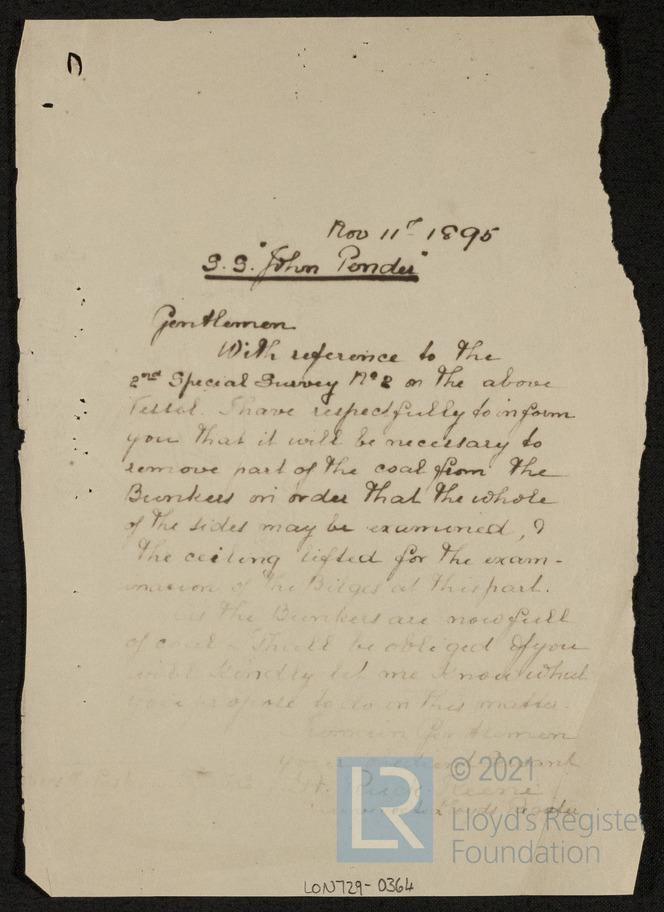 Nov 11th 1895
S.S. "John Pender"
Gentlemen
With reference to the
2nd Special Survey No 2 on the above
Vessel. I have respectfully to inform
you that it will be necessary to
remove part of the coal from the
Bunkers in order that the whole
of the sides may be examined, &
the ceiling lifted for the exam-
ination of the Bilges at this part.
As the Bunkers are now full
of coal I shall be obliged if you
will kindly let me know what
you propose to do in this matter.
I remain Gentlemen
your obedient Servant
© 2021
Lloyd's Register
Foundation
LR
LON729-0364